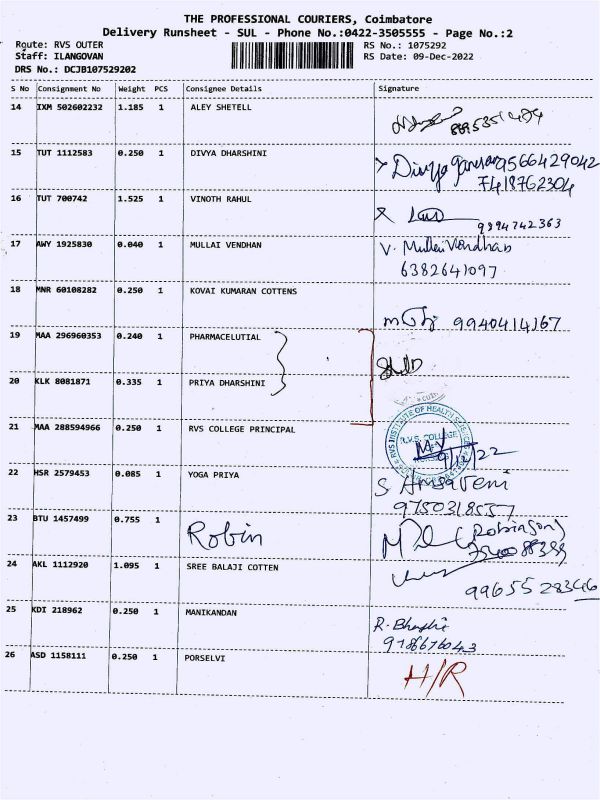 THE PROFESSIONAL COURIERS, Coimbatore
Delivery Runsheet - SUL - Phone No.:0422-3505555 - Page No.:2
Route: RVS OUTER RS No.: 1075292
Staff: ILANGOVAN RS Date: 09-Dec-2022
DRS No.: DCJB107529202
S No Consignment No Weight PCS Consignee Details Signature
14 IXM 502602232 1.185 1 ALEY SHETELL
15 TUT 1112583 0.250 1 DIVYA DHARSHINI Divya 9566429042
7418762304
16 TUT 700742 1.525 1 VINOTH RAHUL
9994742363
17 AWY 1925830 0.040 1 MULLAI VENDHAN V. Mullai Vendhan
6382641097
18 MNR 60108282 0.250 1 KOVAI KUMARAN COTTENS
9940414167
19 MAA 296960353 0.240 1 PHARMACELUTIAL
20 KLK 8081871 0.335 1 PRIYA DHARSHINI
21 MAA 288594966 0.250 1 RVS COLLEGE PRINCIPAL
RVS INSTITUTE OF HEALTH SCIENCES
R.V.S. COLLEGE
9/12/22
22 HSR 2579453 0.085 1 YOGA PRIYA
S Ansaveni
9750318557
23 BTU 1457499 0.755 1 Robin (Robinson)
24 AKL 1112920 1.095 1 SREE BALAJI COTTEN
9965528346
25 KDI 218962 0.250 1 MANIKANDAN R.
9786676043
26 ASD 1158111 0.250 1 PORSELVI H/R